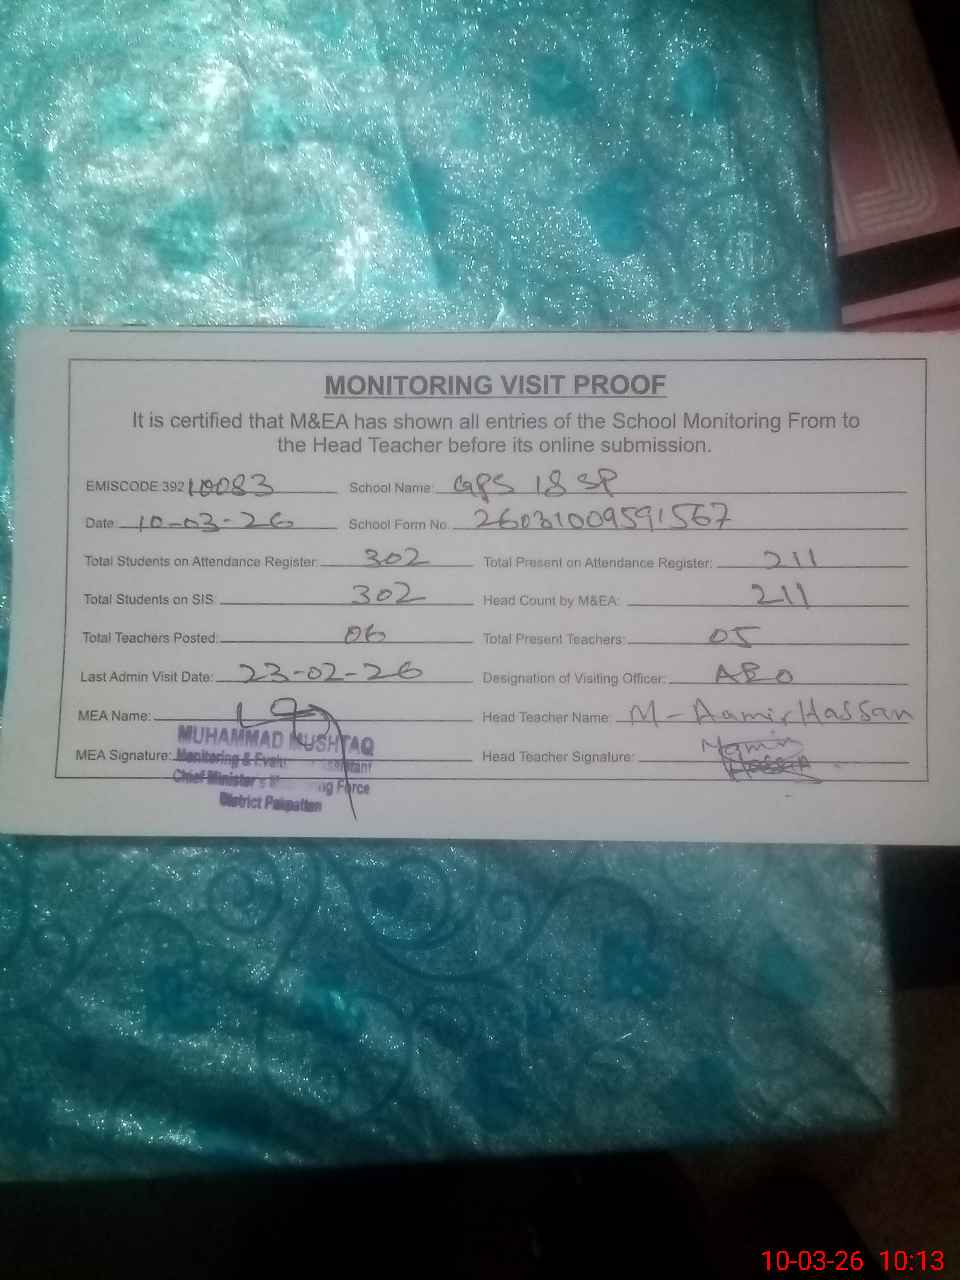 MONITORING VISIT PROOF
It is certified that M&EA has shown all entries of the School Monitoring From to
the Head Teacher before its online submission.
EMISCODE 39210083 School Name: GPS 18 SP
Date 10-03-26 School Form No. 26031009591567
Total Students on Attendance Register: 302 Total Present on Attendance Register: 211
Total Students on SIS: 302 Head Count by M&EA: 211
Total Teachers Posted: 06 Total Present Teachers: 05
Last Admin Visit Date: 23-02-26 Designation of Visiting Officer: AEO
MEA Name: Head Teacher Name: M-Aamir Hassan
MUHAMMAD MUSHTAQ
MEA Signature: Head Teacher Signature: Aamir Hassan
Monitoring & Evalu Assistant
Chief Minister's M ng Force
District Pakpattan
10-03-26 10:13